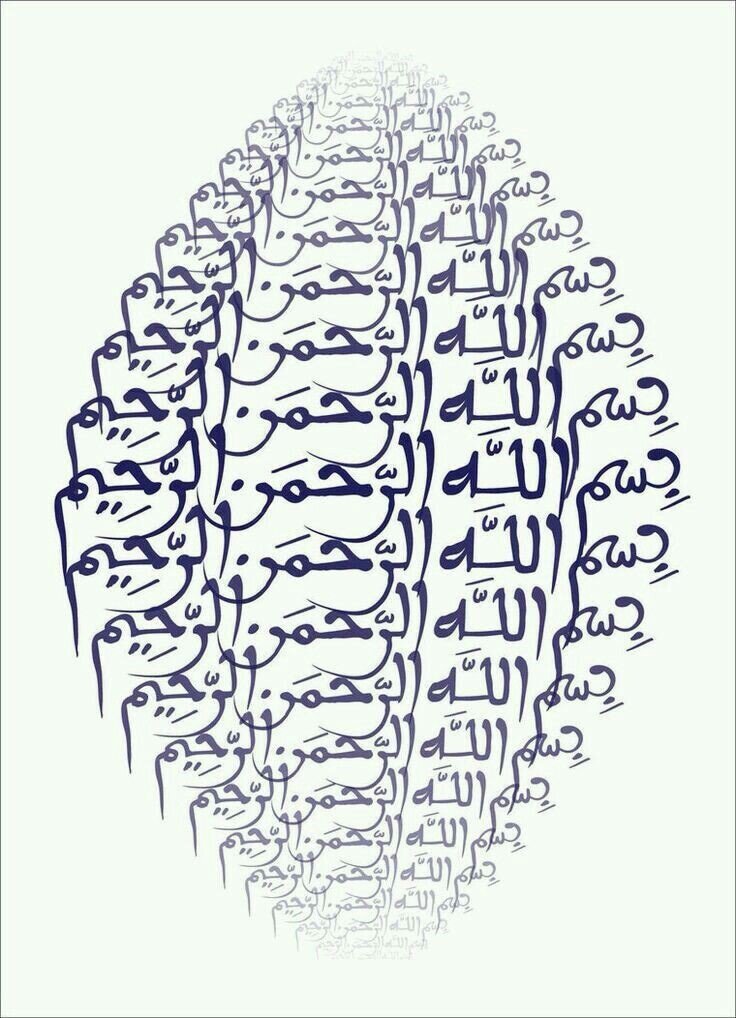 بِسم اللَّه الرَّحمَن الرَّحِيم
بِسم اللَّه الرَّحمَن الرَّحِيم
بِسم اللَّه الرَّحمَن الرَّحِيم
بِسم اللَّه الرَّحمَن الرَّحِيم
بِسم اللَّه الرَّحمَن الرَّحِيم
بِسم اللَّه الرَّحمَن الرَّحِيم
بِسم اللَّه الرَّحمَن الرَّحِيم
بِسم اللَّه الرَّحمَن الرَّحِيم
بِسم اللَّه الرَّحمَن الرَّحِيم
بِسم اللَّه الرَّحمَن الرَّحِيم
بِسم اللَّه الرَّحمَن الرَّحِيم
بِسم اللَّه الرَّحمَن الرَّحِيم
بِسم اللَّه الرَّحمَن الرَّحِيم
بِسم اللَّه الرَّحمَن الرَّحِيم
بِسم اللَّه الرَّحمَن الرَّحِيم
بِسم اللَّه الرَّحمَن الرَّحِيم
بِسم اللَّه الرَّحمَن الرَّحِيم
بِسم اللَّه الرَّحمَن الرَّحِيم
بِسم اللَّه الرَّحمَن الرَّحِيم
بِسم اللَّه الرَّحمَن الرَّحِيم
بِسم اللَّه الرَّحمَن الرَّحِيم